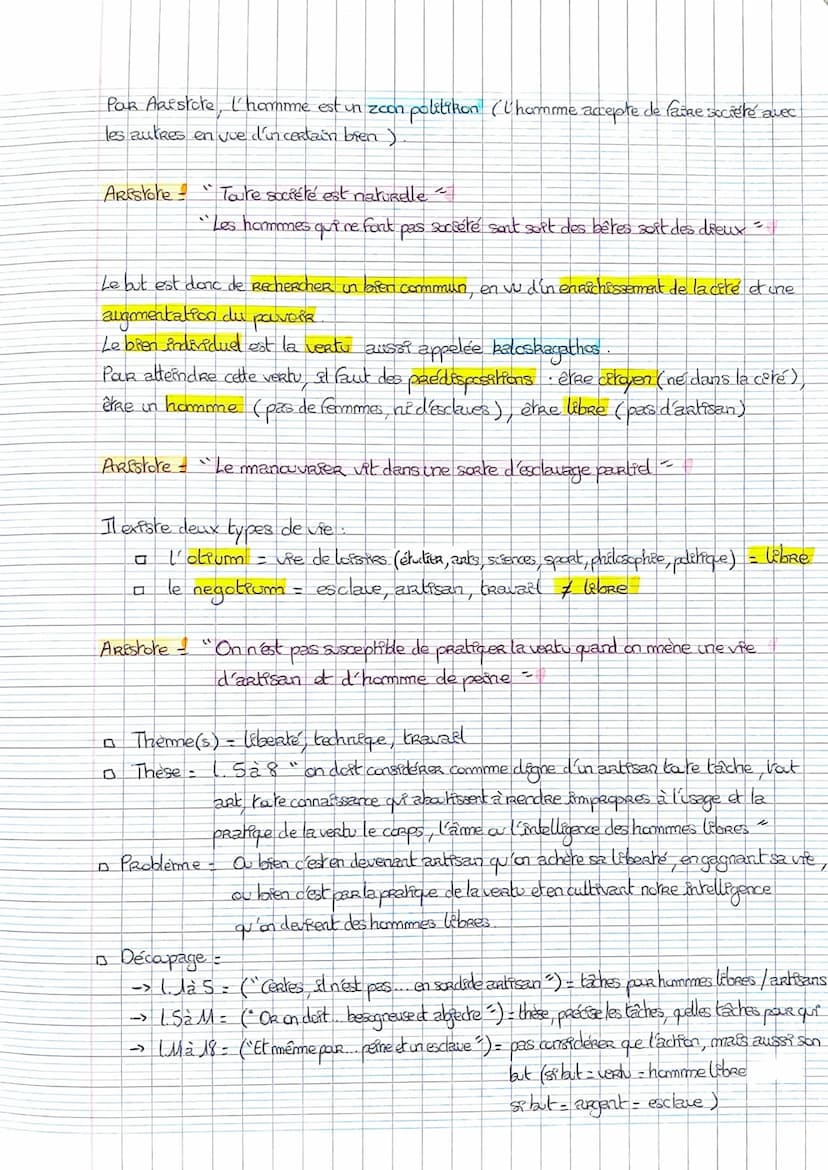 Par Aristote, l'homme est un zoon politikon (l'homme accepte de faire société avec
les autres en vue d'un certain bien).
Aristote = "Toute société est naturelle"
"Les hommes qui ne font pas société sont soit des bêtes soit des dieux"
Le but est donc de rechercher un bien commun, en vu d'un enrichissement de la cité et une
augmentation du pouvoir.
Le bien individuel est la vertu aussi appelée kaloskagathos.
Pour atteindre cette vertu, il faut des prédispositions : être citoyen (né dans la cité),
être un homme (pas de femmes, ni d'esclaves), être libre (pas d'artisan)
Aristote = "Le manouvrier vit dans une sorte d'esclavage partiel"
Il existe deux types de vie :
□ l'otium = vie de loisirs (étudier, arts, sciences, sport, philosophie, politique) = libre
□ le negotium = esclave, artisan, travail ≠ libre
Aristote = "On n'est pas susceptible de pratiquer la vertu quand on mène une vie
d'artisan et d'homme de peine"
□ Thème(s) = liberté, technique, travail
□ Thèse = l. 5 à 8 "on doit considérer comme digne d'un artisan toute tâche, tout
art, toute connaissance qui aboutissent à rendre impropres à l'usage et la
pratique de la vertu le corps, l'âme ou l'intelligence des hommes libres"
□ Problème = Ou bien c'est en devenant artisan qu'on achète sa liberté, en gagnant sa vie,
ou bien c'est par la pratique de la vertu et en cultivant notre intelligence
qu'on devient des hommes libres.
□ Découpage =
-> l. 1 à 5 = ("Certes, il n'est pas... en sordide artisan") = tâches pour hommes libres / artisans
-> l. 5 à 11 = ("Or on doit... besogneuse et abjecte") = thèse, précise les tâches, quelles tâches pour qui
-> l. 11 à 18 = ("Et même pour... peine et un esclave") = pas considérer que l'action, mais aussi son
but (si but = vertu = homme libre
si but = argent = esclave)